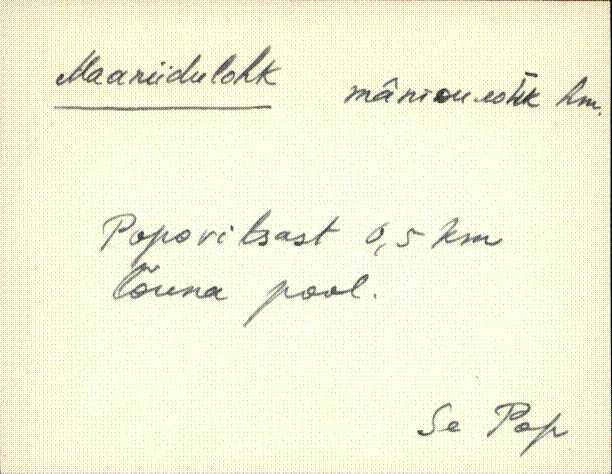 Maaniidulohk hm.
Popovitsast 0,5 km
lõuna pool.
Se Pop